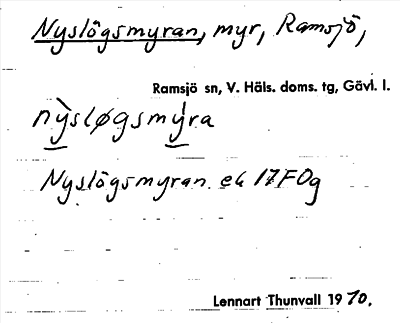 Nyslögsmyran, myr, Ramsjö,
Ramsjö sn, V. Häls. doms. tg, Gävl. l.
nỳsløgsmýra
Nyslögsmyran ek 17F0g
Lennart Thunvall 1970.